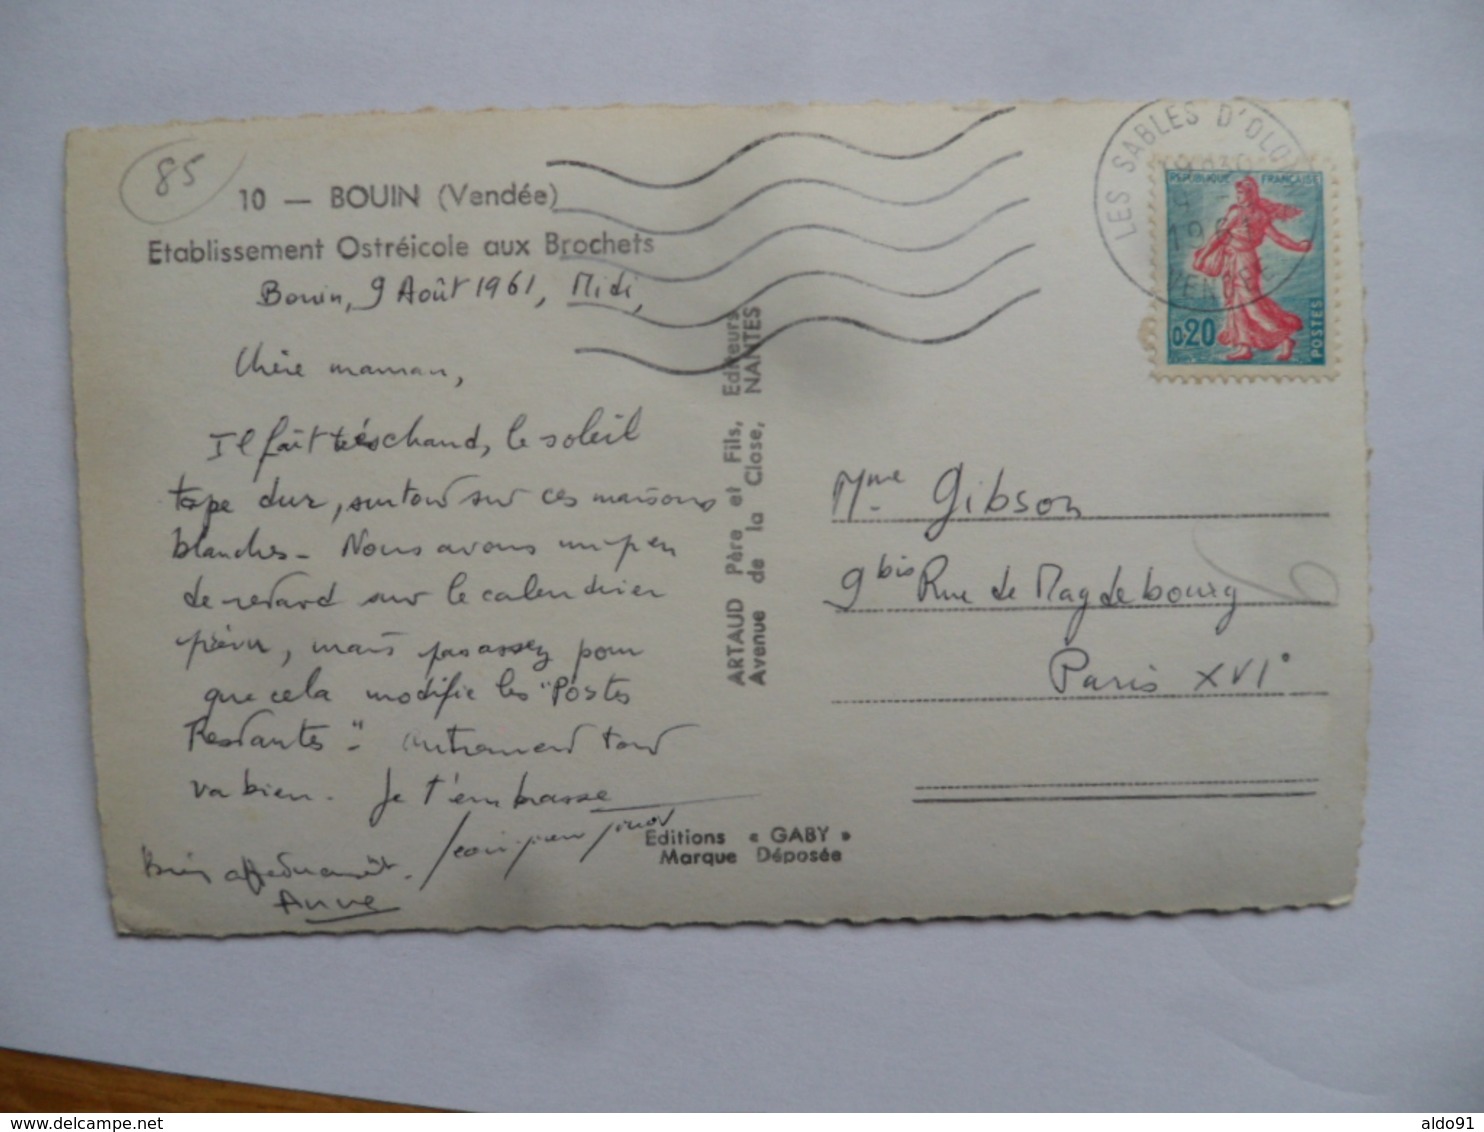 85
10 — BOUIN (Vendée)
Etablissement Ostréicole aux Brochets
Bouin, 9 Août 1961, Midi,
Chère maman,
Il fait très chaud, le soleil
tape dur, surtout sur ces maisons
blanches - Nous avons un peu
de retard sur le calendrier
prévu, mais pas assez pour
que cela modifie les "Postes
Restantes" - autrement tout
va bien. Je t'embrasse
Bien affectueusement.
Anne
ARTAUD Père et Fils, Editeurs
Avenue de la Close, NANTES
Editions « GABY »
Marque Déposée
LES SABLES D'OLO
VENDEE
REPUBLIQUE FRANÇAISE
0,20
POSTES
Mme Gibson
9 bis Rue de Magdebourg
Paris XVI°
aldo91